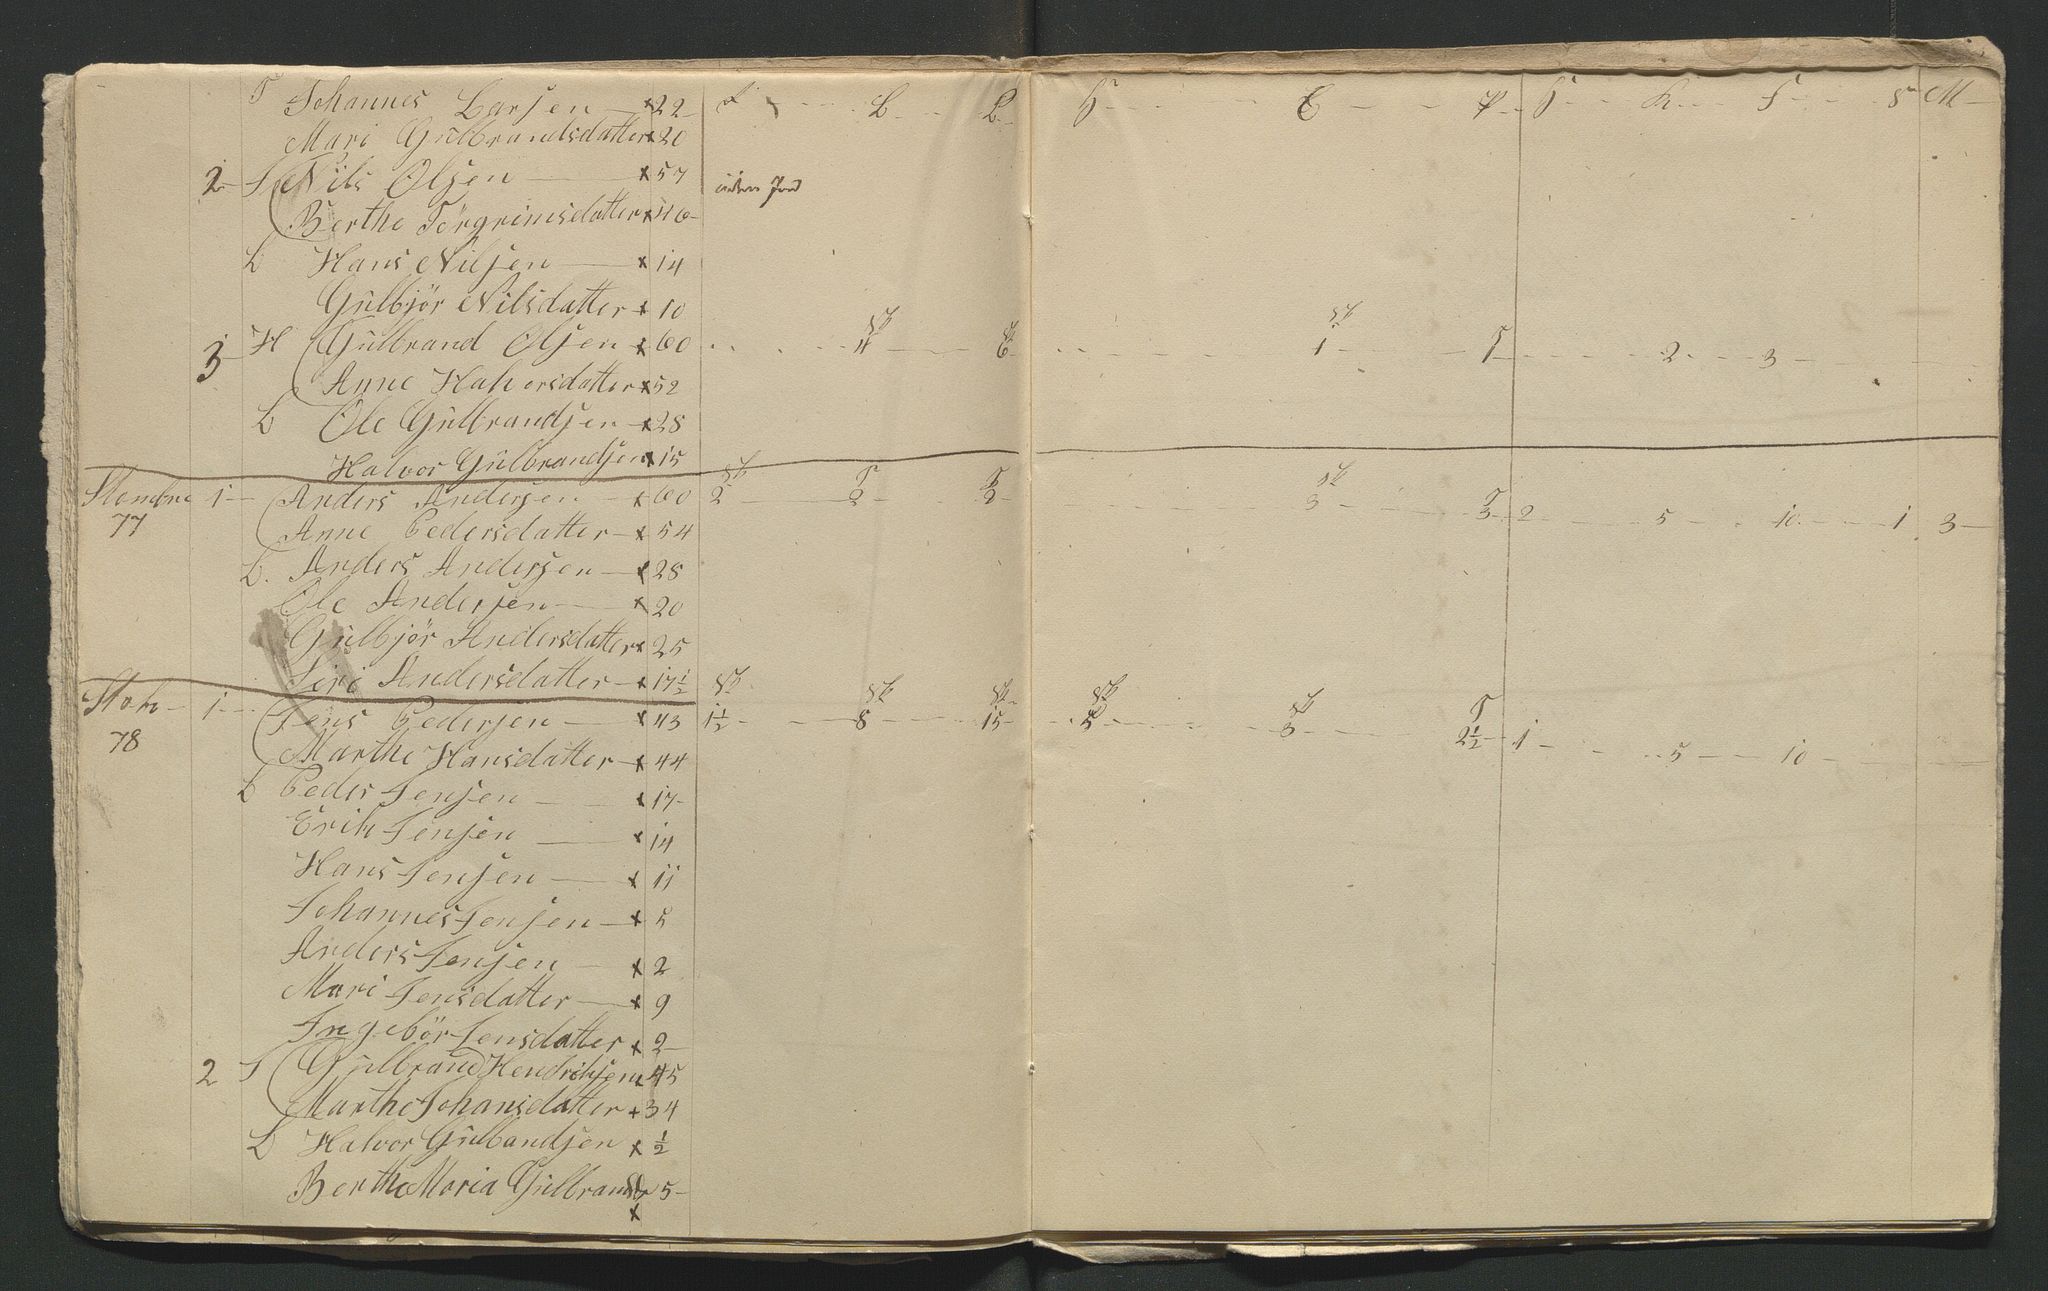 T Johannes Larsen — x 22 - L - L - H - E - P - H - K - F - S M -
Mari Gülbrandsdatter x 20
2 - Nils Olsen — x 57 uden Jord
Berthe Torgrimsdatter x 46 -
L Hans Nilsen — x 14
Gülbjör Nilsdatter x 10
3 - H Gülbrand Olsen x 60 - - - 6 - - 1 - 1 - - 2 - 3 -
Anne Halvorsdatter x 52
L Ole Gülbrandsen x 28
Halvor Gülbrandsen x 15
1 - Anders Andersen - x 60 2 - 2 - 2 - - 3 - 3 - 2 - 5 - 10 - 1 3 -
77 Anne Pedersdatter - x 54
L. Anders Andersen - x 28
Ole Andersen - x 20
Gülbjör Andersdatter x 25
Siri Andersdatter - x 17½
1 - Jens Pedersen - x 43 1½ - 8 - 15 - - 3 - 2½ - 1 - 5 - 10 -
78 Marthe Hansdatter - x 44
L Peder Jensen - x 17 -
Erik Jensen — x 14
Hans Jensen - x 11
Johannes Jensen - x 5
Anders Jensen - x 2
Mari Jensdatter - x 9
Ingebör Jensdatter x 2 -
2 Gülbrand Hendriksen x 45
Marthe Johansdatter x 34
L Halvor Gülbandsen x ½
Berthe Maria Gülbrandsdr x 5 -